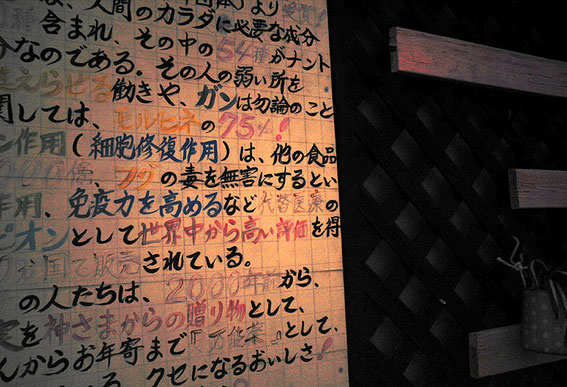 は、人間のカラダに必要な成分
含まれ、その中の54種がナント
分なのである。その人の弱い所を
えらせる働きや、ガンは勿論のこと
関しては、モルヒネの75%!
ン作用(細胞修復作用)は、他の食品
の毒を無害にするとい
作用、免疫力を高めるなど代替医薬の
ピオンとして世界中から高い評価を得
国で販売されている。
の人たちは、2000年前から、
実を神さまからの贈り物として、
んからお年寄まで『万能薬』として、
クセになるおいしさ!